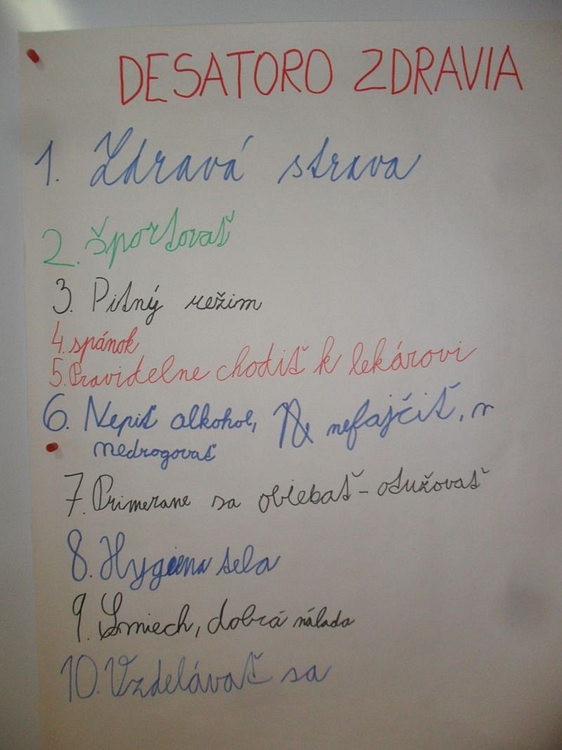 DESATORO ZDRAVIA
1. Zdravá strava
2. Športovať
3. Pitný režim
4. spánok
5. Pravidelne chodiť k lekárovi
6. Nepiť alkohol, nefajčiť, n
nedrogovať
7. Primerane sa obliekať - otužovať
8. Hygiena tela
9. Smiech, dobrá nálada
10. Vzdelávať sa